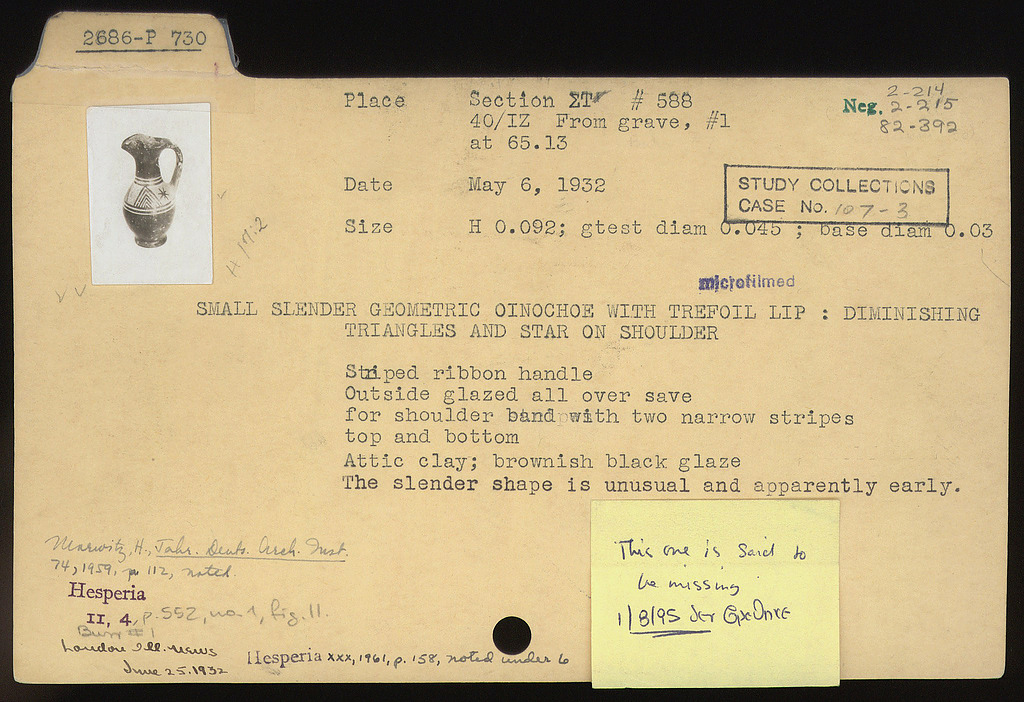 2686-P 730
Place Section ΣΤ # 588
40/IZ From grave, #1
at 65.13
Neg. 2-214
2-215
82-392
Date May 6, 1932
STUDY COLLECTIONS
CASE No. 107-3
Size H 0.092; gtest diam 0.045 ; base diam 0.03
H 17:2
microfilmed
SMALL SLENDER GEOMETRIC OINOCHOE WITH TREFOIL LIP : DIMINISHING
TRIANGLES AND STAR ON SHOULDER
Striped ribbon handle
Outside glazed all over save
for shoulder band with two narrow stripes
top and bottom
Attic clay; brownish black glaze
The slender shape is unusual and apparently early.
Marwitz, H., Jahr. Deuts. Arch. Inst.
74, 1959, p. 112, noted.
Hesperia
II, 4, p. 552, no. 1, fig. 11.
Burr # 1
London Ill. News
June 25. 1932
Hesperia XXX, 1961, p. 158, noted under 6
This one is said to
be missing
1/8/95